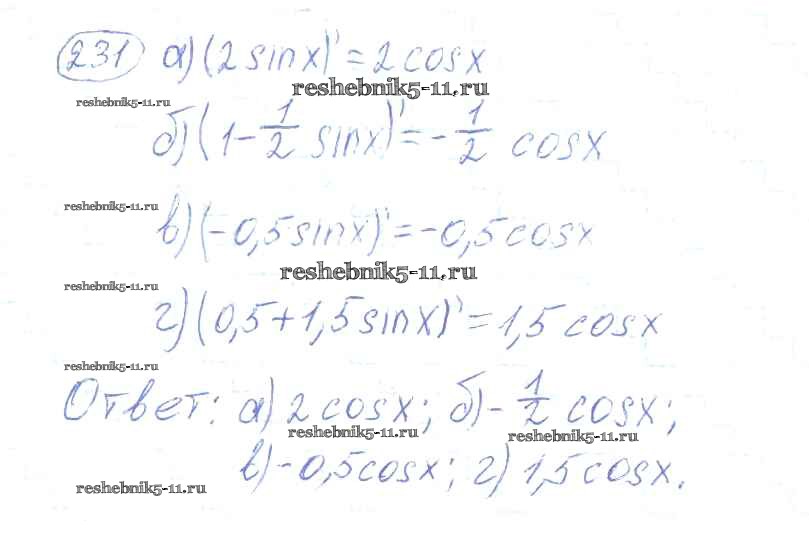 231 а) (2 sinx)' = 2 cosx
reshebnik5-11.ru
reshebnik5-11.ru
б) (1 - 1/2 sinx)' = - 1/2 cosx
reshebnik5-11.ru
в) (-0,5 sinx)' = -0,5 cosx
reshebnik5-11.ru
reshebnik5-11.ru
г) (0,5 + 1,5 sinx)' = 1,5 cosx
reshebnik5-11.ru
Ответ: а) 2 cosx; б) - 1/2 cosx;
reshebnik5-11.ru
reshebnik5-11.ru
в) -0,5 cosx; г) 1,5 cosx.
reshebnik5-11.ru